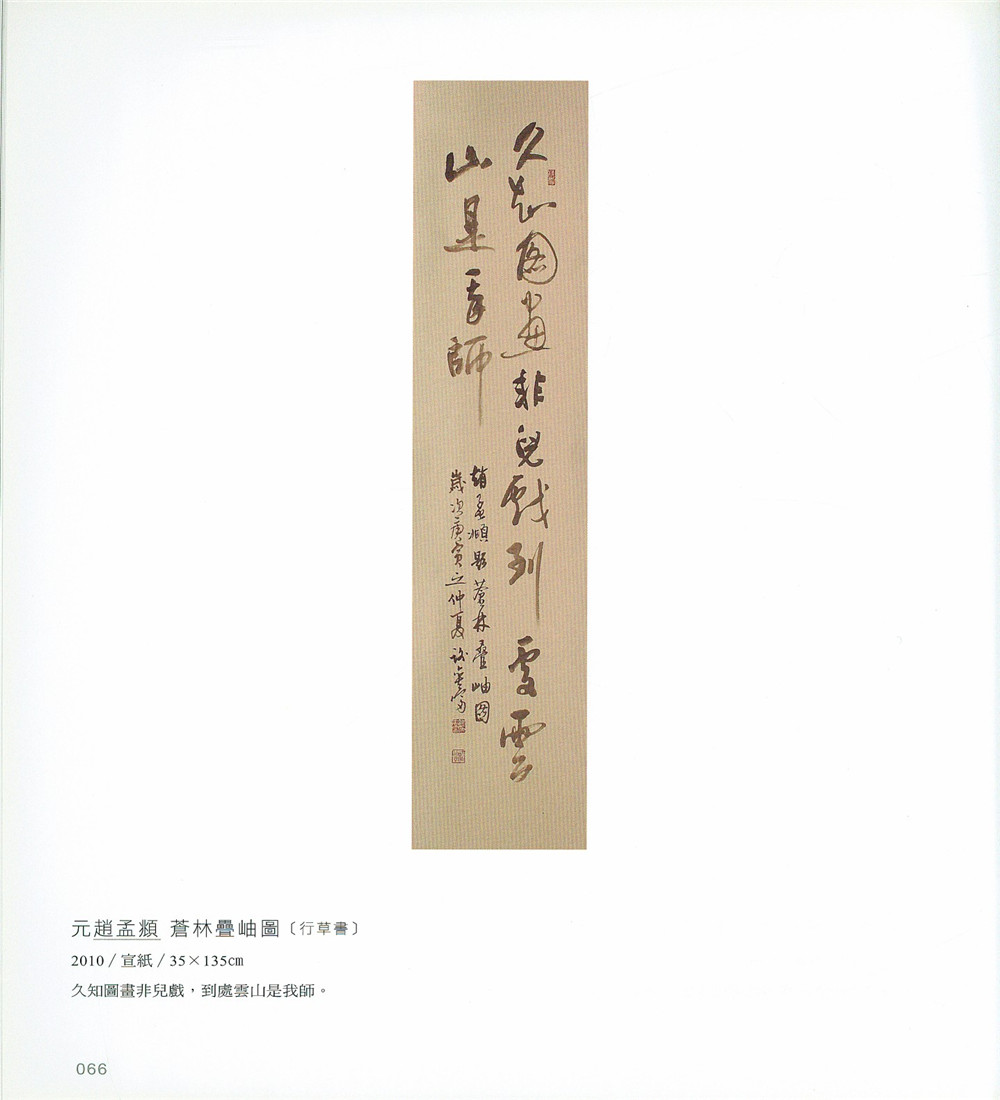 久知圖畫非兒戲到處雲
山是我師
趙孟頫題蒼林叠岫图
歲次庚寅之仲夏
元趙孟頫 蒼林疊岫圖〔行草書〕
2010／宣紙／35×135cm
久知圖畫非兒戲，到處雲山是我師。
066